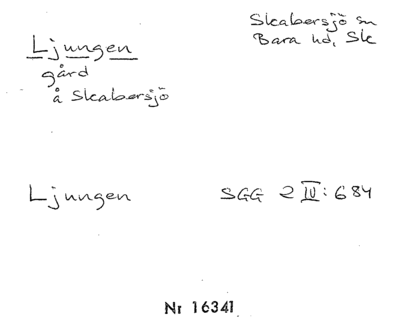 Ljungen
gård
å Skabersjö
Skabersjö sn
Bara hd, Sk
Ljungen SGG 2 IV: 684
Nr 16341